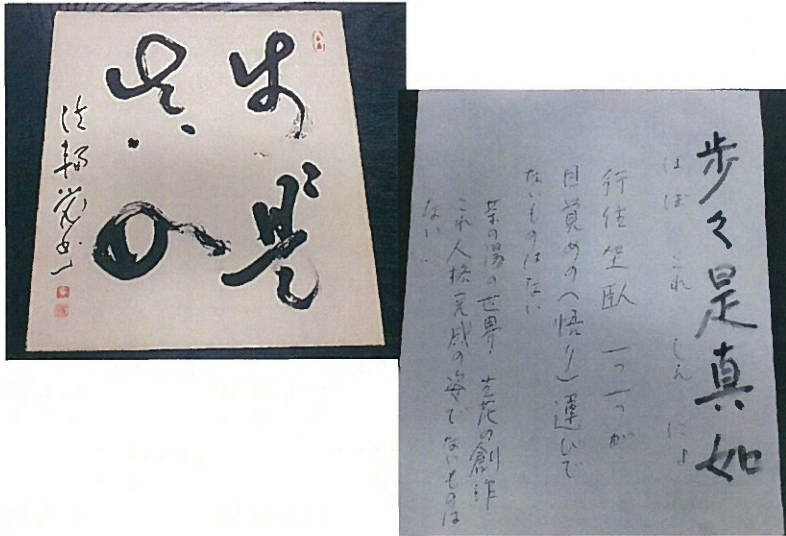 歩々是
真如
歩々是真如
ほぼ これ しん にょ
行住坐臥 一つ一つが
目覚めの(悟り)運びで
ないものはない
茶の湯の世界、生花の創作
これ人格完成の姿でないものは
ない。